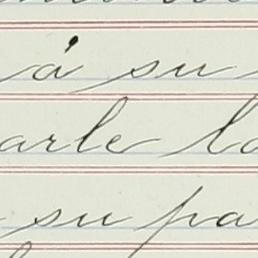 á su
arle la
su pa